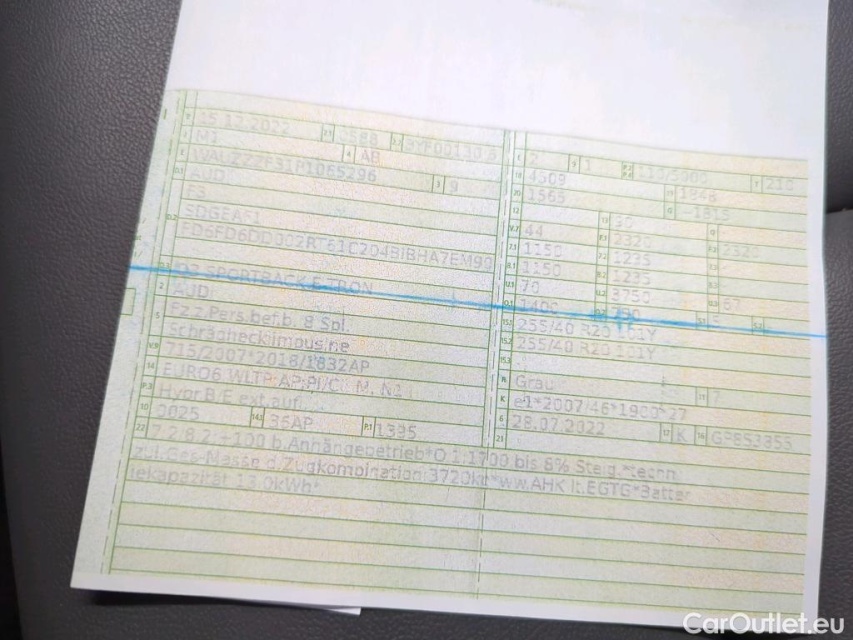 15.12.2022 0588 2 1 110/5000 210
M1 AB 4509 1848
WAUZZZF31P1065296 9 1565 -1815
AUDI
F3 44 2320 2320
SDGEAF1 1150 1235
FD6FD6DD002RT61C204BIBHA7EM99 1150 1235
70 3750 67
Q3 SPORTBACK E-TRON 1400 750
AUDI 255/40 R20 101Y
Fz.z.Pers.bef.b. 8 Spl. 255/40 R20 101Y
Schräghecklimousine
715/2007*2018/1832AP Grau 7
EURO6 WLTP AP;PI/CI; M, N1 e1*2007/46*1900*27
Hybr.B/E ext.aufl. 28.07.2022 K
0025 36AP 1395
7.2:8.2:+100 b.Anhängebetrieb*O.1:1700 bis 8% Steig.*techn.
zul.Ges-Masse d.Zugkombination:3720kg*ww.AHK lt.EGTG*Batter
iekapazität 13.0kWh*
CarOutlet.eu